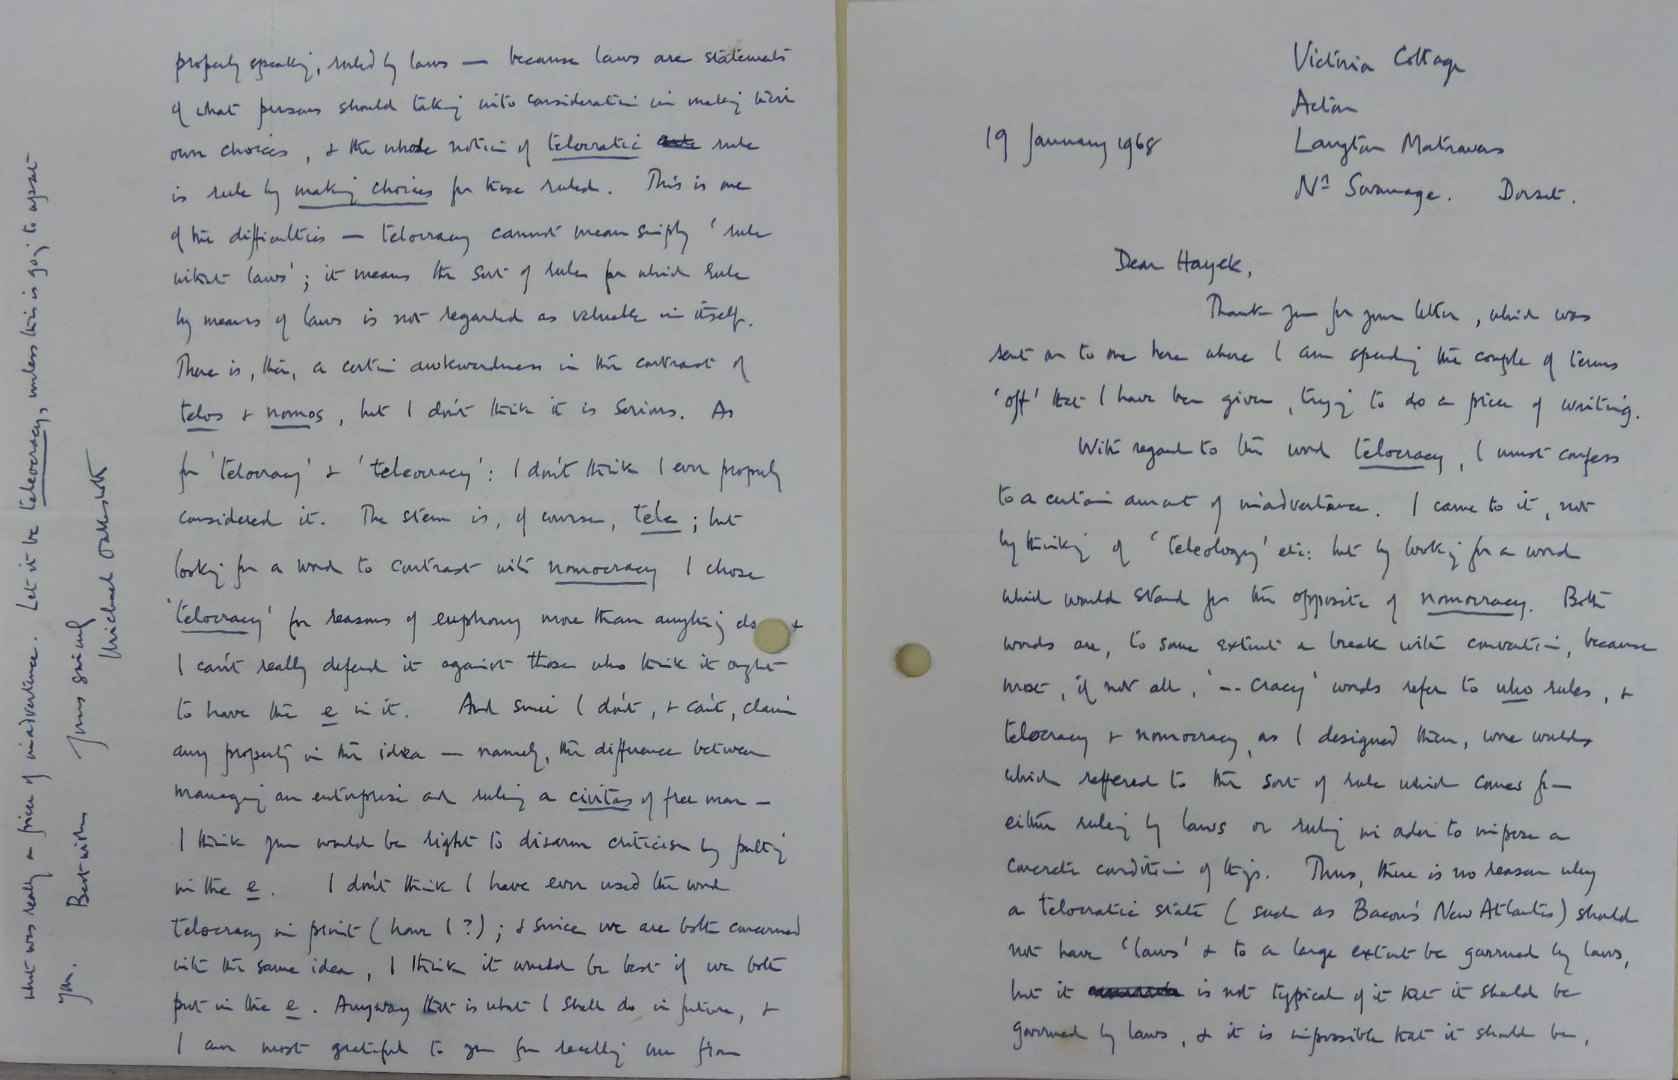 Victoria Cottage
Acton
19 January 1968
Langton Matravers
Nr Swanage. Dorset.
Dear Hayek,
Thank you for your letter, which was
sent on to me here where I am spending the couple of terms
'off' that I have been given, trying to do a piece of writing.
With regard to the word telocracy, I must confess
to a certain amount of inadvertance. I came to it, not
by thinking of 'teleology' etc: but by looking for a word
which would stand for the opposite of nomocracy. Both
words are, to some extent a break with convention, because
most, if not all, '-- cracy' words refer to who rules, &
telocracy & nomocracy, as I designed them, were words
which reffered to the sort of rule which comes from
either ruling by laws or ruling in order to impose a
concrete condition of things. Thus, there is no reason why
a telocratic state (such as Bacon's New Atlantis) should
not have 'laws' & to a large extent be governed by laws,
but it is not typical of it that it should be
governed by laws, & it is impossible that it should be,
properly speaking, ruled by laws — because laws are statements
of what persons should taking into consideration in making their
own choices, & the whole notion of telocratic rule
is rule by making choices for those ruled. This is one
of the difficulties — telocracy cannot mean simply 'rule
without laws'; it means the sort of rule for which rule
by means of laws is not regarded as valuable in itself.
There is, then, a certain awkwardness in the contrast of
telos & nomos, but I don't think it is serious. As
for 'telocracy' & 'teleocracy': I don't think I ever properly
considered it. The stem is, of course, tele; but
looking for a word to contrast with nomocracy I chose
'telocracy' for reasons of euphony more than anything else &
I can't really defend it against those who think it ought
to have the e in it. And since I don't, & can't, claim
any property in the idea — namely, the difference between
managing an enterprise and ruling a civitas of free men —
I think you would be right to disarm criticism by putting
in the e. I don't think I have ever used the word
telocracy in print (have I?); & since we are both concerned
with the same idea, I think it would be best if we both
put in the e. Anyway that is what I shall do in future, &
I am most grateful to you for recalling me from
what was really a piece of inadvertence. Let it be teleocracy, unless this is going to upset
you. Best wishes Yours sincerely
Michael Oakeshott